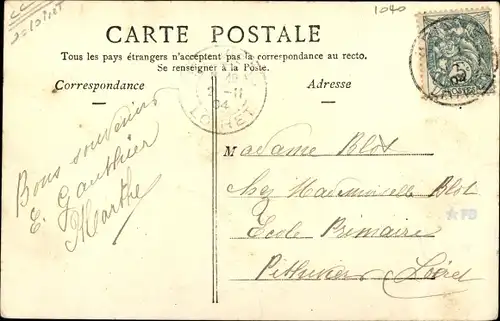 1040
CARTE POSTALE
Tous les pays étrangers n'acceptent pas la correspondance au recto.
Se renseigner à la Poste.
Correspondance
Adresse
LOIRET
04
Bons souvenirs
E. Gauthier
Marthe
Madame Blot
chez Mademoiselle Blot
Ecole Primaire
Pithiviers Loiret
FD